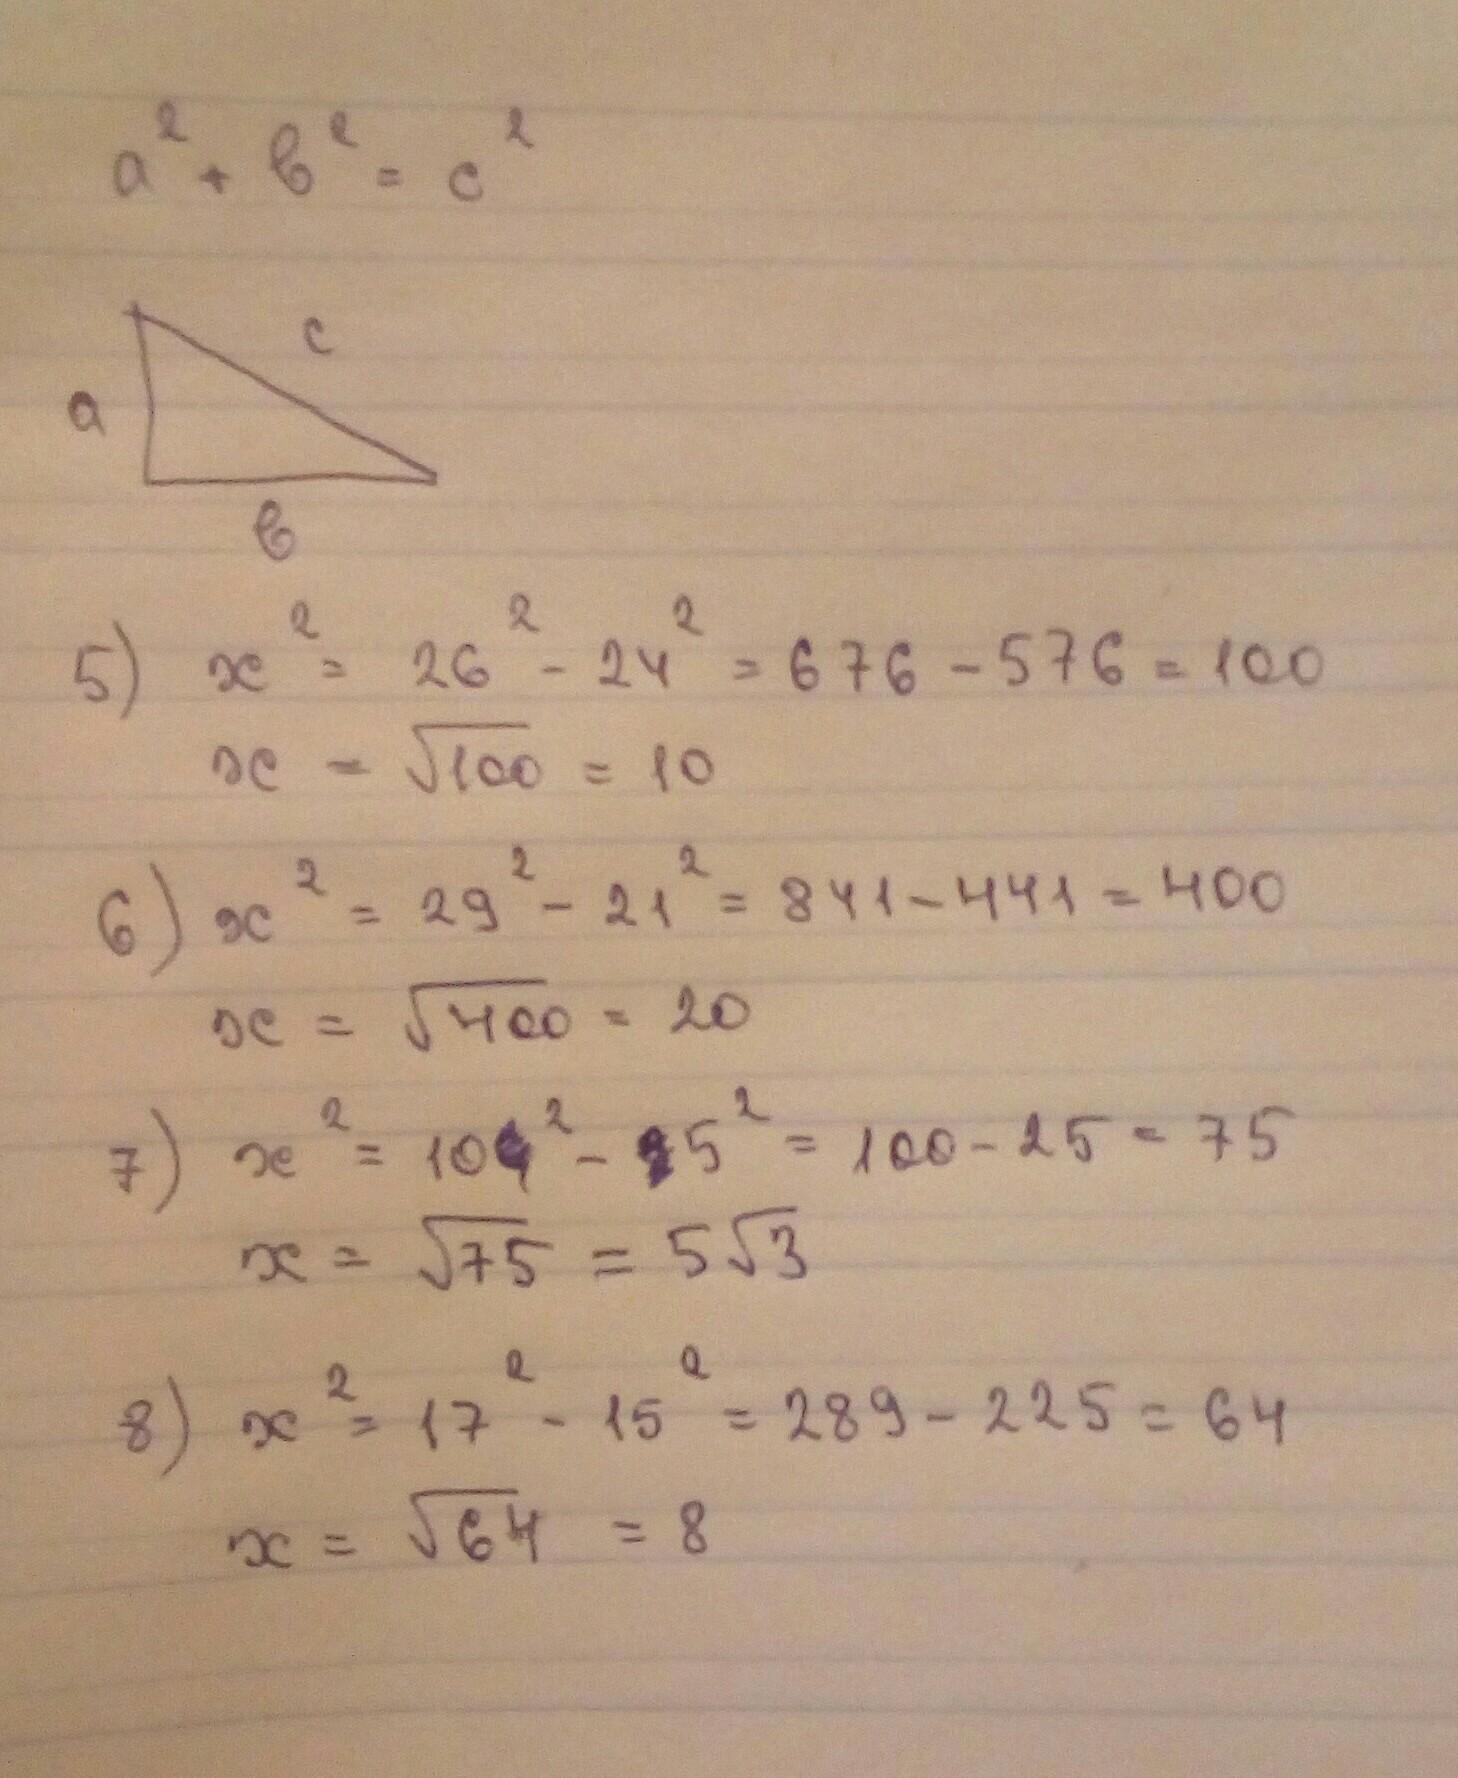 a² + в² = c²
c
a
в
5) x² = 26² - 24² = 676 - 576 = 100
x = √100 = 10
6) x² = 29² - 21² = 841 - 441 = 400
x = √400 = 20
7) x² = 10² - 5² = 100 - 25 = 75
x = √75 = 5√3
8) x² = 17² - 15² = 289 - 225 = 64
x = √64 = 8